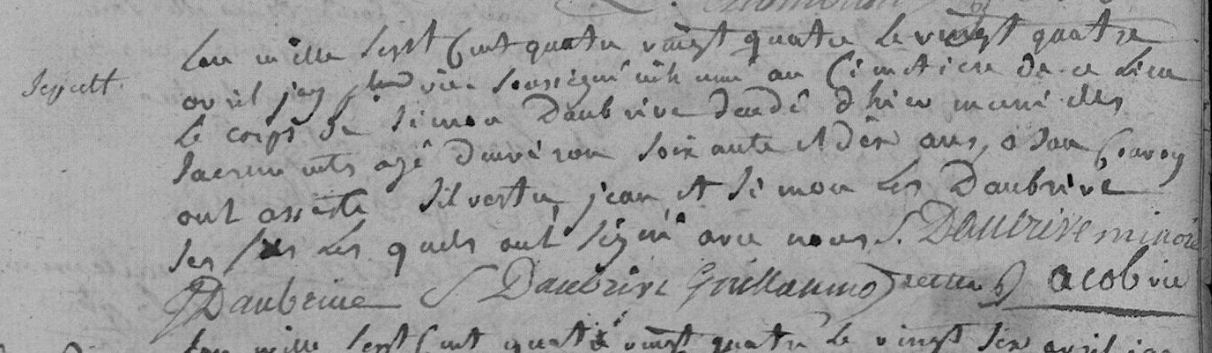 Lan mille sept Cent quatre vingt quatre le vingt quatre
avril jay vic. soussigné inhumé au Cimetiere de ce Lieu
Le corps de Simon Daubrive decedé dhier muni des
sacrements agé denviron soixante et dix ans, a son Convoy
ont assisté Silvestre, jean, et Simon Les Daubrive
ses fils Les quels ont signé avec nous S. Daubrive
J Daubrive S Daubrive Guillaume Jacob vic
Lan mille sept Cent quatre vingt quatre le vingt six avril